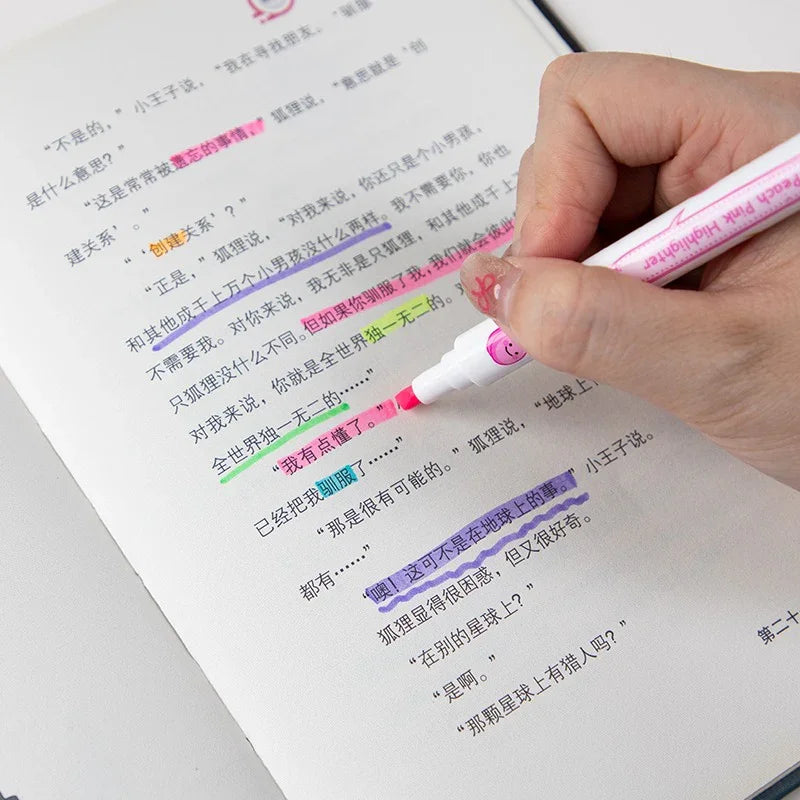 “不是的，”小王子说，“我在寻找朋友。‘驯服
是什么意思？”
“这是常常被遗忘的事情，”狐狸说，“意思就是‘创
建关系’。”
“‘创建关系’？”
“正是，”狐狸说，“对我来说，你还只是个小男孩，
和其他成千上万个小男孩没什么两样。我不需要你，你也
不需要我。对你来说，我无非是只狐狸，和其他成千上
只狐狸没什么不同。但如果你驯服了我，我们就会彼此
对我来说，你就是全世界独一无二的。对
全世界独一无二的……”
“我有点懂了。”
已经把我驯服了……”
“那是很有可能的。”狐狸说，“地球上
都有……”
“噢！这可不是在地球上的事。”小王子说。
狐狸显得很困惑，但又很好奇。
“在别的星球上？”
“是啊。”
“那颗星球上有猎人吗？”
第二十
Peach Pink Highlighter